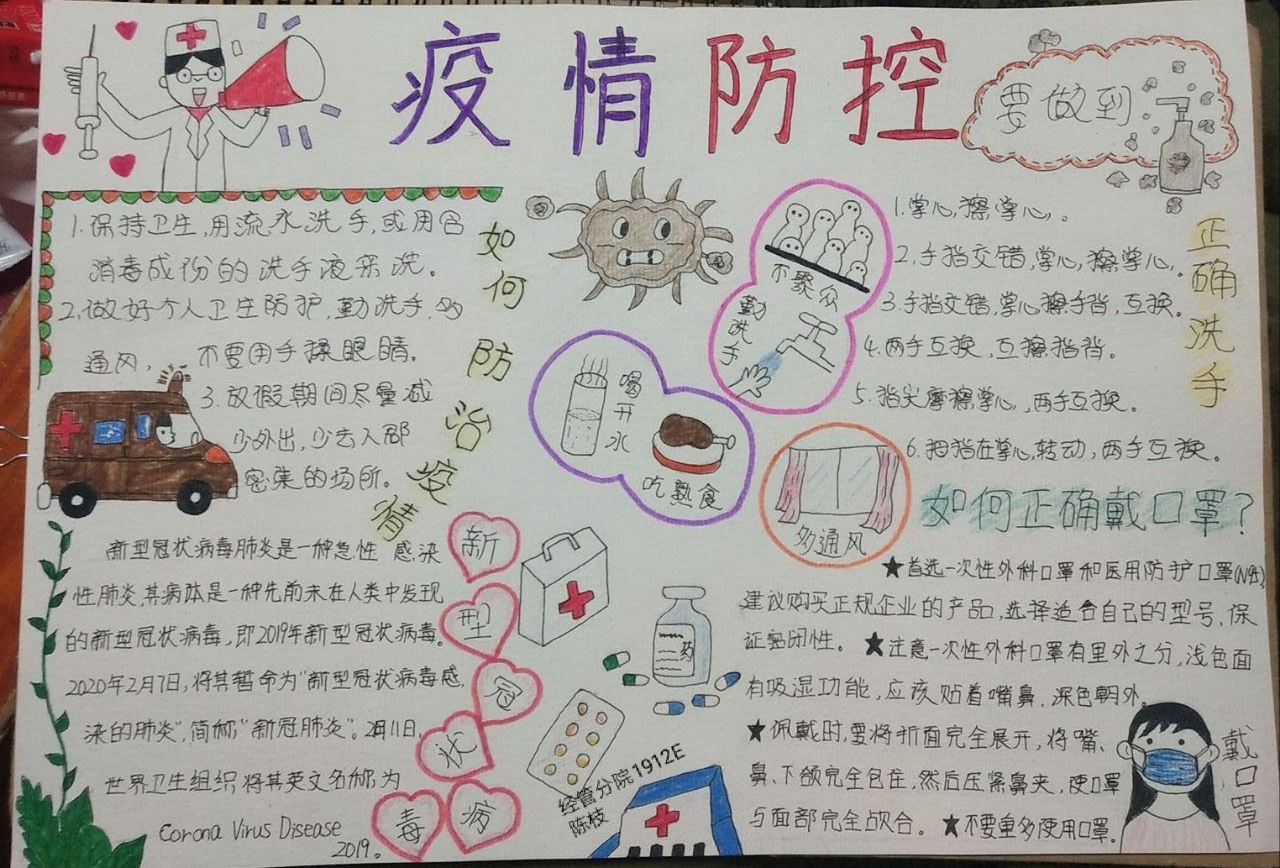 疫情防控
要做到
1.保持卫生,用流水洗手,或用含
消毒成份的洗手液亲洗。
2.做好个人卫生防护,勤洗手,多
通风,不要用手揉眼睛。
3.放假期间尽量减
少外出,少去人部
密集的场所。
如何防治疫情
不聚众
勤洗手
喝开水
吃熟食
多通风
正确洗手
1.掌心,擦掌心,。
2.手指交错,掌心,擦掌心,。
3.手指交错,掌心擦手背,互换。
4.两手互换,互擦指背。
5.指尖摩擦掌心,两手互换。
6.拇指在掌心,转动,两手互换。
新型冠状病毒肺炎是一种急性 感染
性肺炎,其病体是一种先前未在人类中发现
的新型冠状病毒,即2019年新型冠状病毒。
2020年2月7日,将其暂命为"新型冠状病毒感
染的肺炎",简称"新冠肺炎"。2月11日,
世界卫生组织将其英文名称为
Corona Virus Disease
2019。
新型冠状病毒
药
经管分院1912E
陈枝
如何正确戴口罩?
★首选一次性外科口罩和医用防护口罩
建议购买正规企业的产品,选择适合自己的型号,保
证密闭性。★注意一次性外科口罩有里外之分,浅色面
有吸湿功能,应该贴着嘴鼻,深色朝外。
★佩戴时,要将折面完全展开,将嘴、
鼻、下颌完全包住,然后压紧鼻夹,使口罩
与面部完全贴合。★不要重多使用口罩。
戴口罩